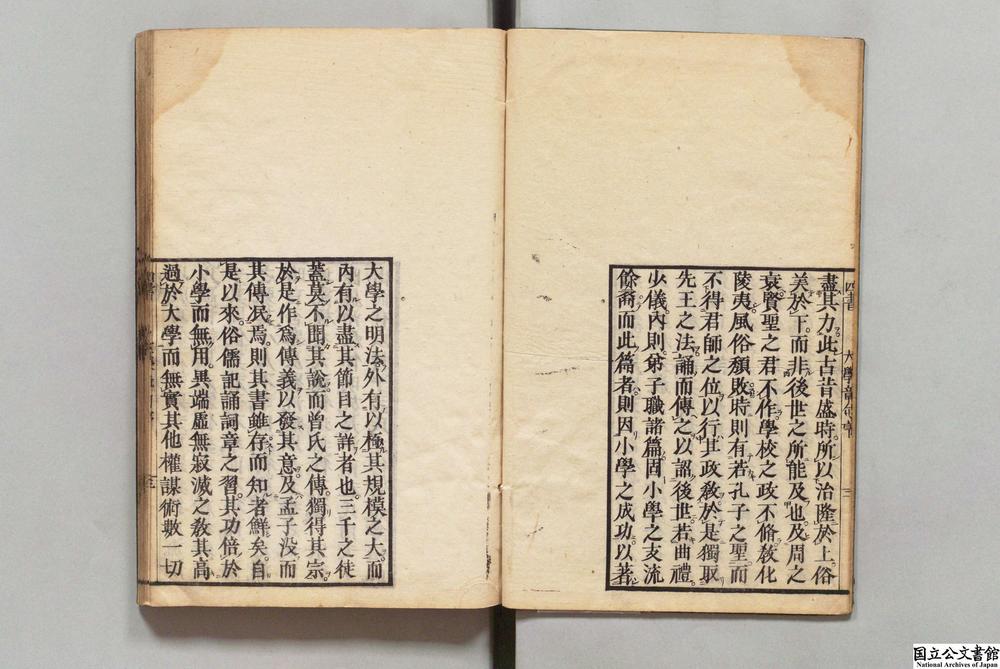 四書 大學章句序 三
盡其力此古昔盛時所以治隆於上俗
美於下而非後世之所能及也及周之
衰賢聖之君不作學校之政不脩敎化
陵夷風俗頽敗時則有若孔子之聖而
不得君師之位以行其政敎於是獨取
先王之法誦而傳之以詔後世若曲禮
少儀內則弟子職諸篇固小學之支流
餘裔而此篇者則因小學之成功以著
大學之明法外有以極其規模之大而
內有以盡其節目之詳者也三千之徒
蓋莫不聞其說而曾氏之傳獨得其宗
於是作爲傳義以發其意及孟子沒而
其傳泯焉則其書雖存而知者鮮矣自
是以來俗儒記誦詞章之習其功倍於
小學而無用異端虛無寂滅之敎其高
過於大學而無實其他權謀術數一切
国立公文書館
National Archives of Japan